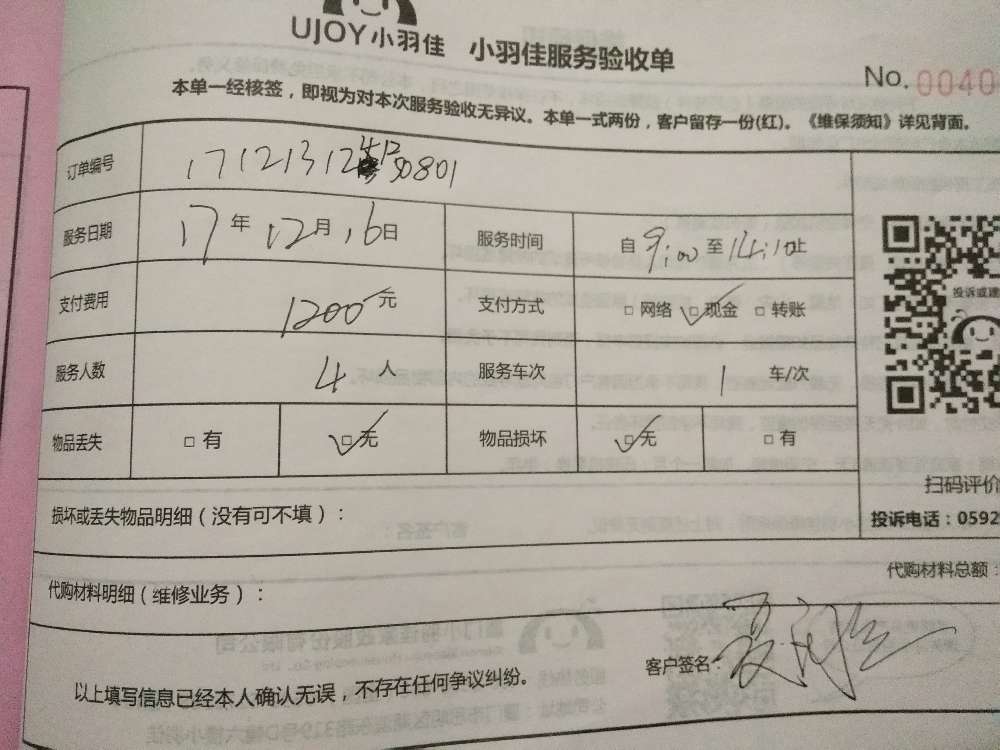 UJOY小羽佳 小羽佳服务验收单
No. 0040
本单一经核签，即视为对本次服务验收无异议。本单一式两份，客户留存一份(红)。《维保须知》详见背面。
订单编号
服务日期 17年12月16日 服务时间 自9:00至14:10止
支付费用 1200元 支付方式 □ 网络 ☑ 现金 □ 转账
服务人数 4人 服务车次 1 车/次
物品丢失 □ 有 ☑ 无 物品损坏 ☑ 无 □ 有
投诉或建
扫码评价
损坏或丢失物品明细（没有可不填）：
投诉电话：0592
代购材料明细（维修业务）：
代购材料总额：
客户签名：
以上填写信息已经本人确认无误，不存在任何争议纠纷。